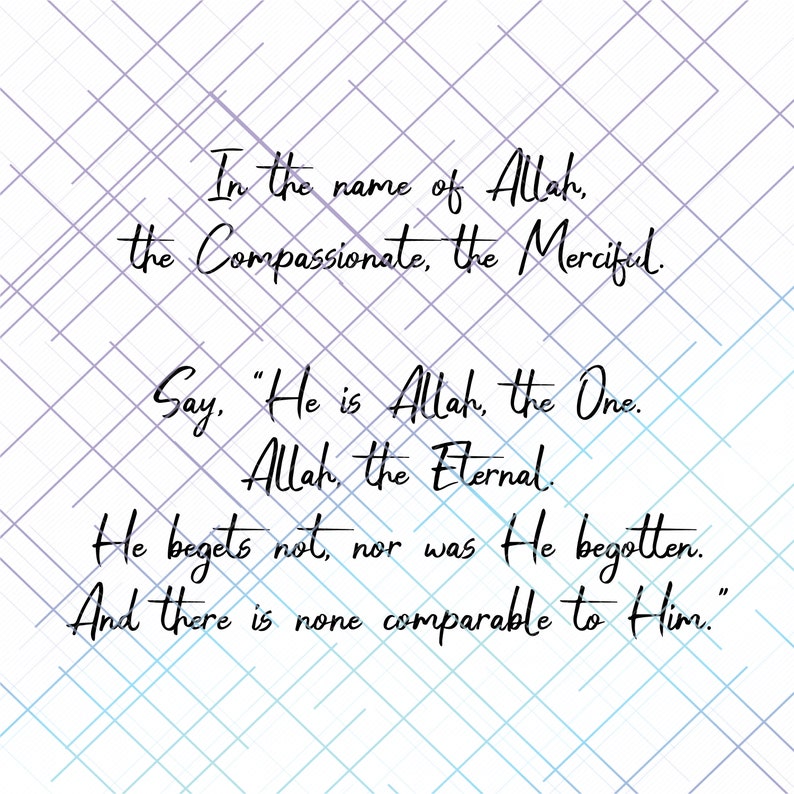 In the name of Allah,
the Compassionate, the Merciful.
Say, "He is Allah, the One.
Allah, the Eternal.
He begets not, nor was He begotten.
And there is none comparable to Him."